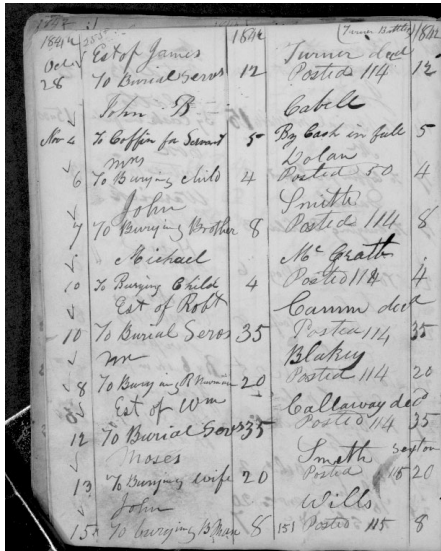 1844 1844 Turner Battle 1844
Oct Est of James Turner decd
28 To Burial Servs 12 Posted 114 12
John B Cabell
Nov 4 To Coffin for Servant 5 By Cash in full 5
Mrs Dolan
6 To Burying child 4 Posted 50 4
John Smith
7 To Burying Brother 8 Posted 114 8
Michael Mc Grath
10 To Burying Child 4 Posted 114 4
Est of Robt Camm decd
10 To Burial Servs 35 Posted 114
Mr Blakey
8 To Burying R 20 Posted 114 20
Est of Wm Callaway decd
12 To Burial Servs 35 Posted 114 35
Moses Smith Sexton
13 To Burying wife 20 Posted 115 20
John Wills
15 To burying B Man 8 151 Posted 115 8